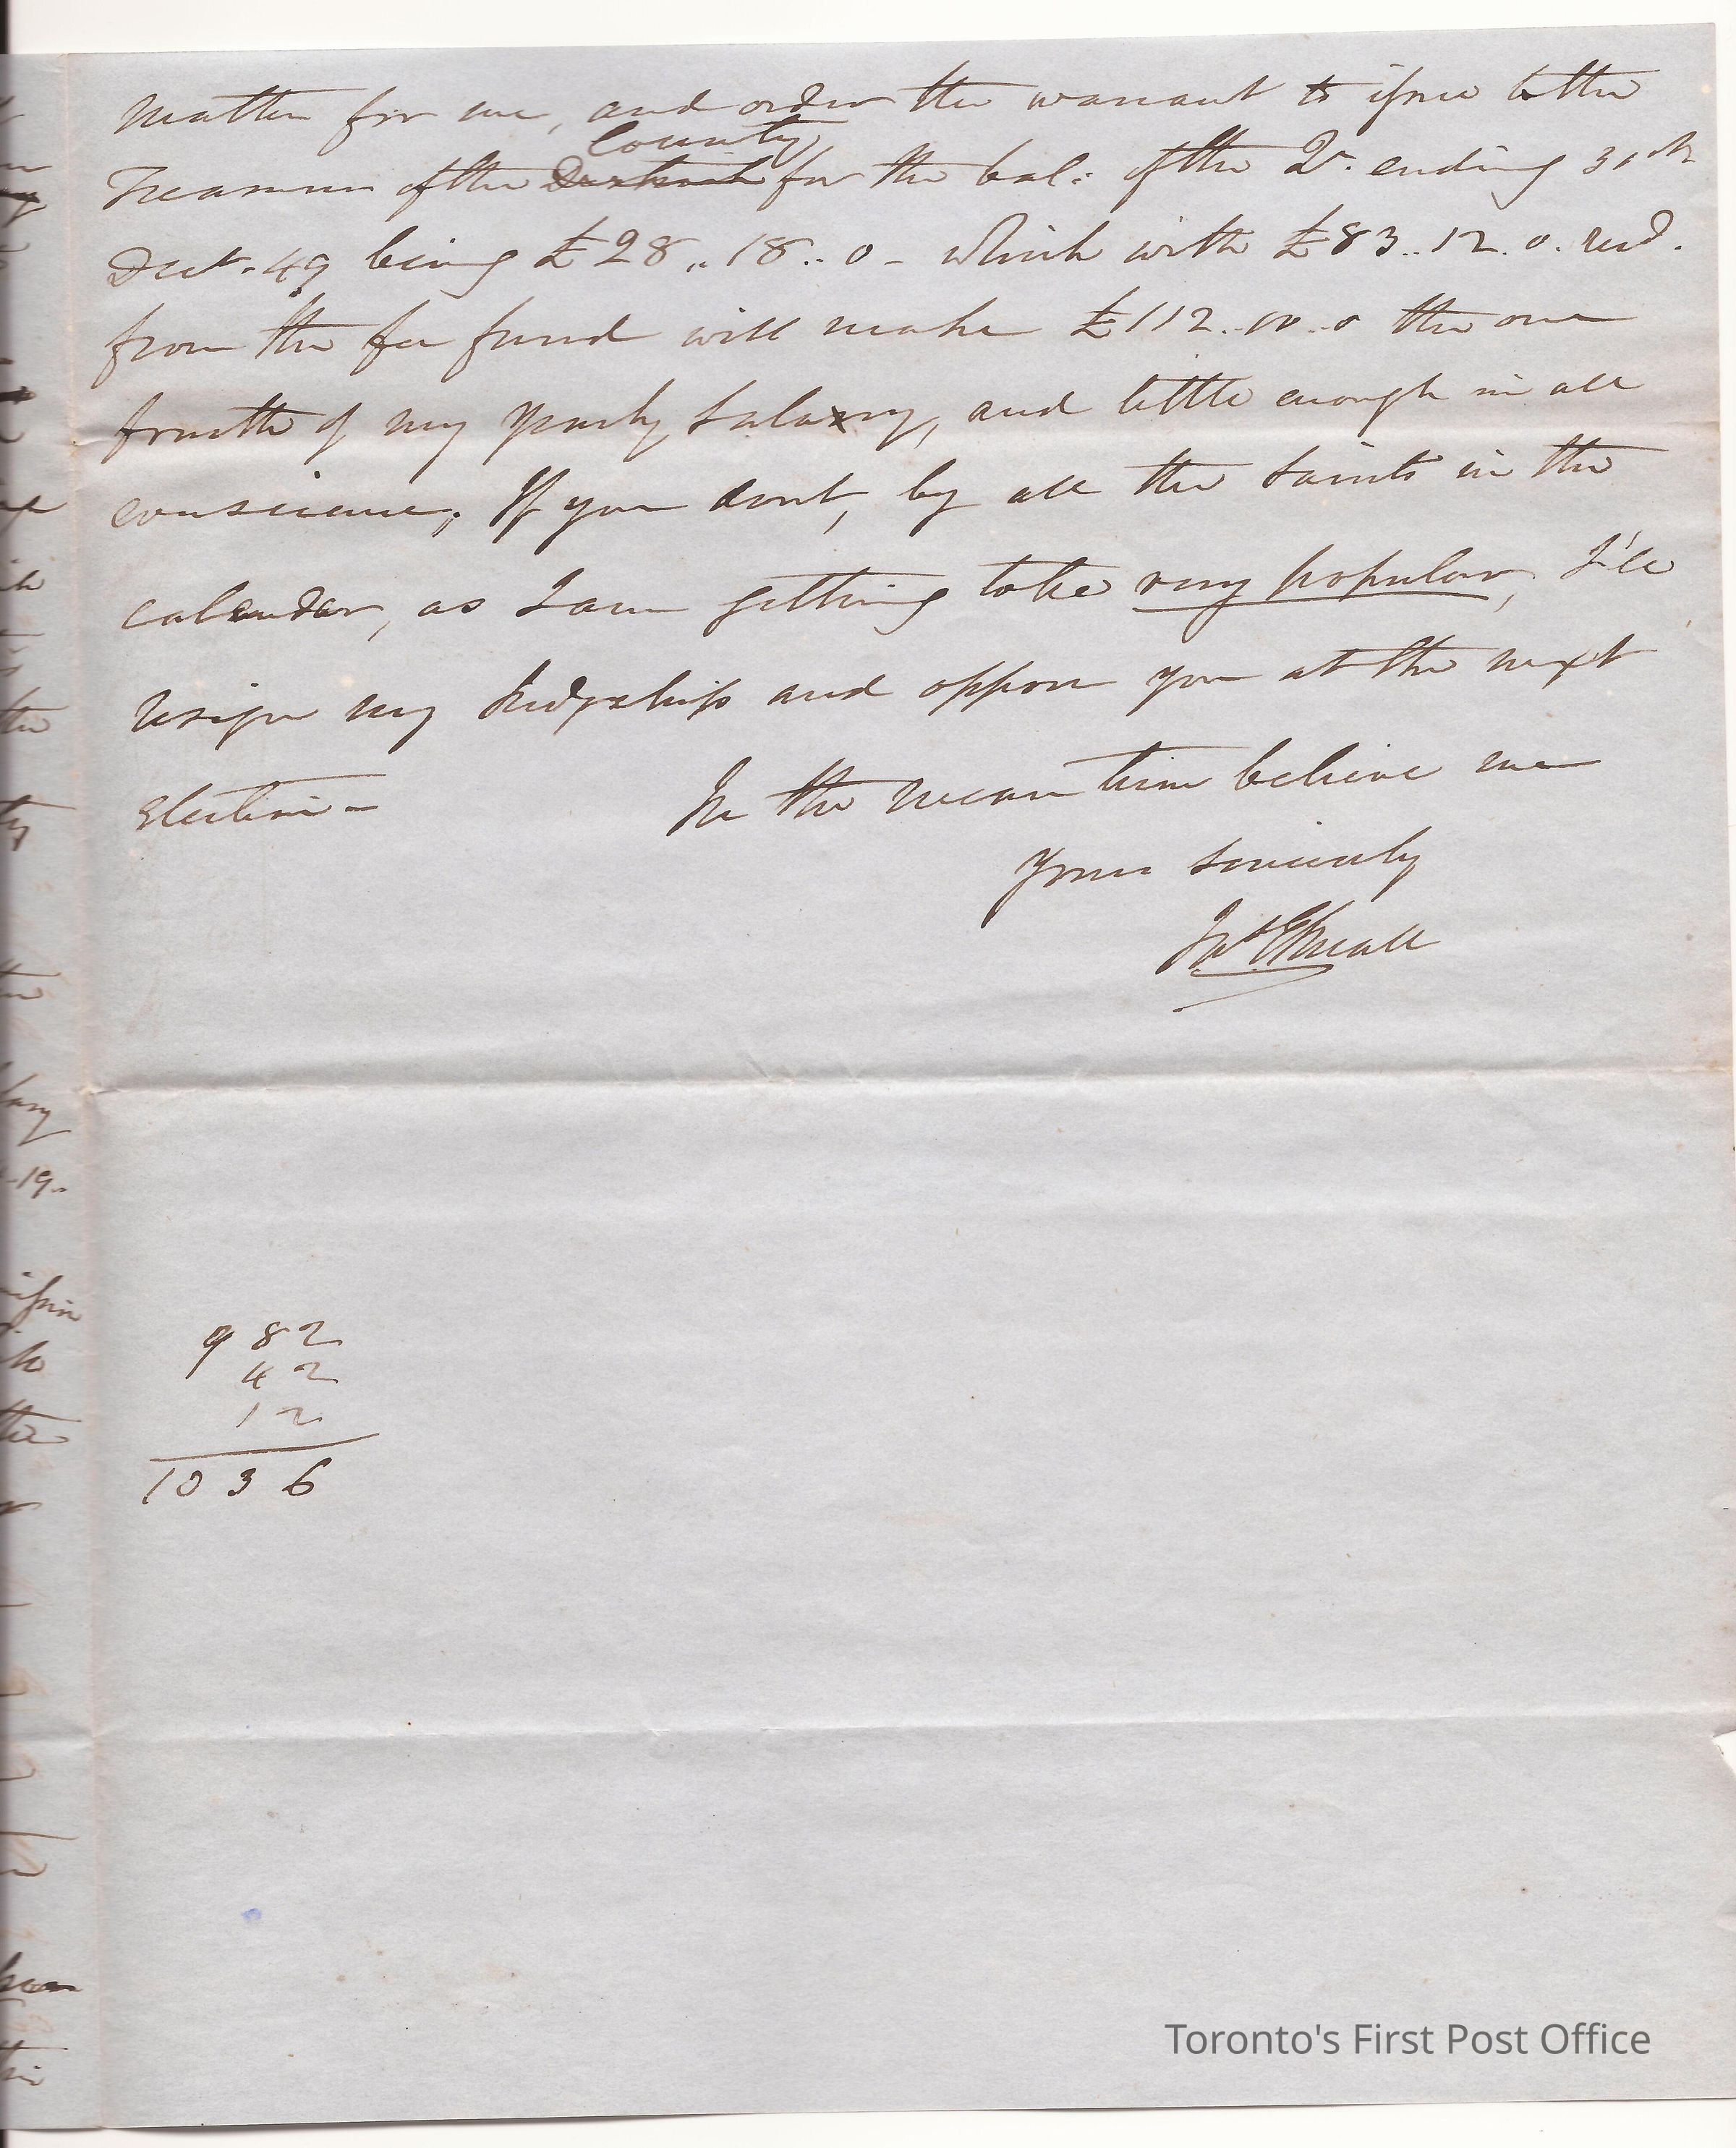 matter for me, and order the warrant to issue to the
County
Treasurer of the District for the bal: of the Qr. ending 31st
Decr. 49 being £28..18..0 - which with £83..12.0. recd.
from the fee fund will make £112..10..0 the one
fourth of my yearly salary, and little enough in all
conscience; If you dont, by all the saints in the
calendar, as I am getting to be very popular, I'll
resign my Judgeship and oppose you at the next
Election -
In the mean time believe me
Yours sincerely
982
42
12
1036
Toronto's First Post Office